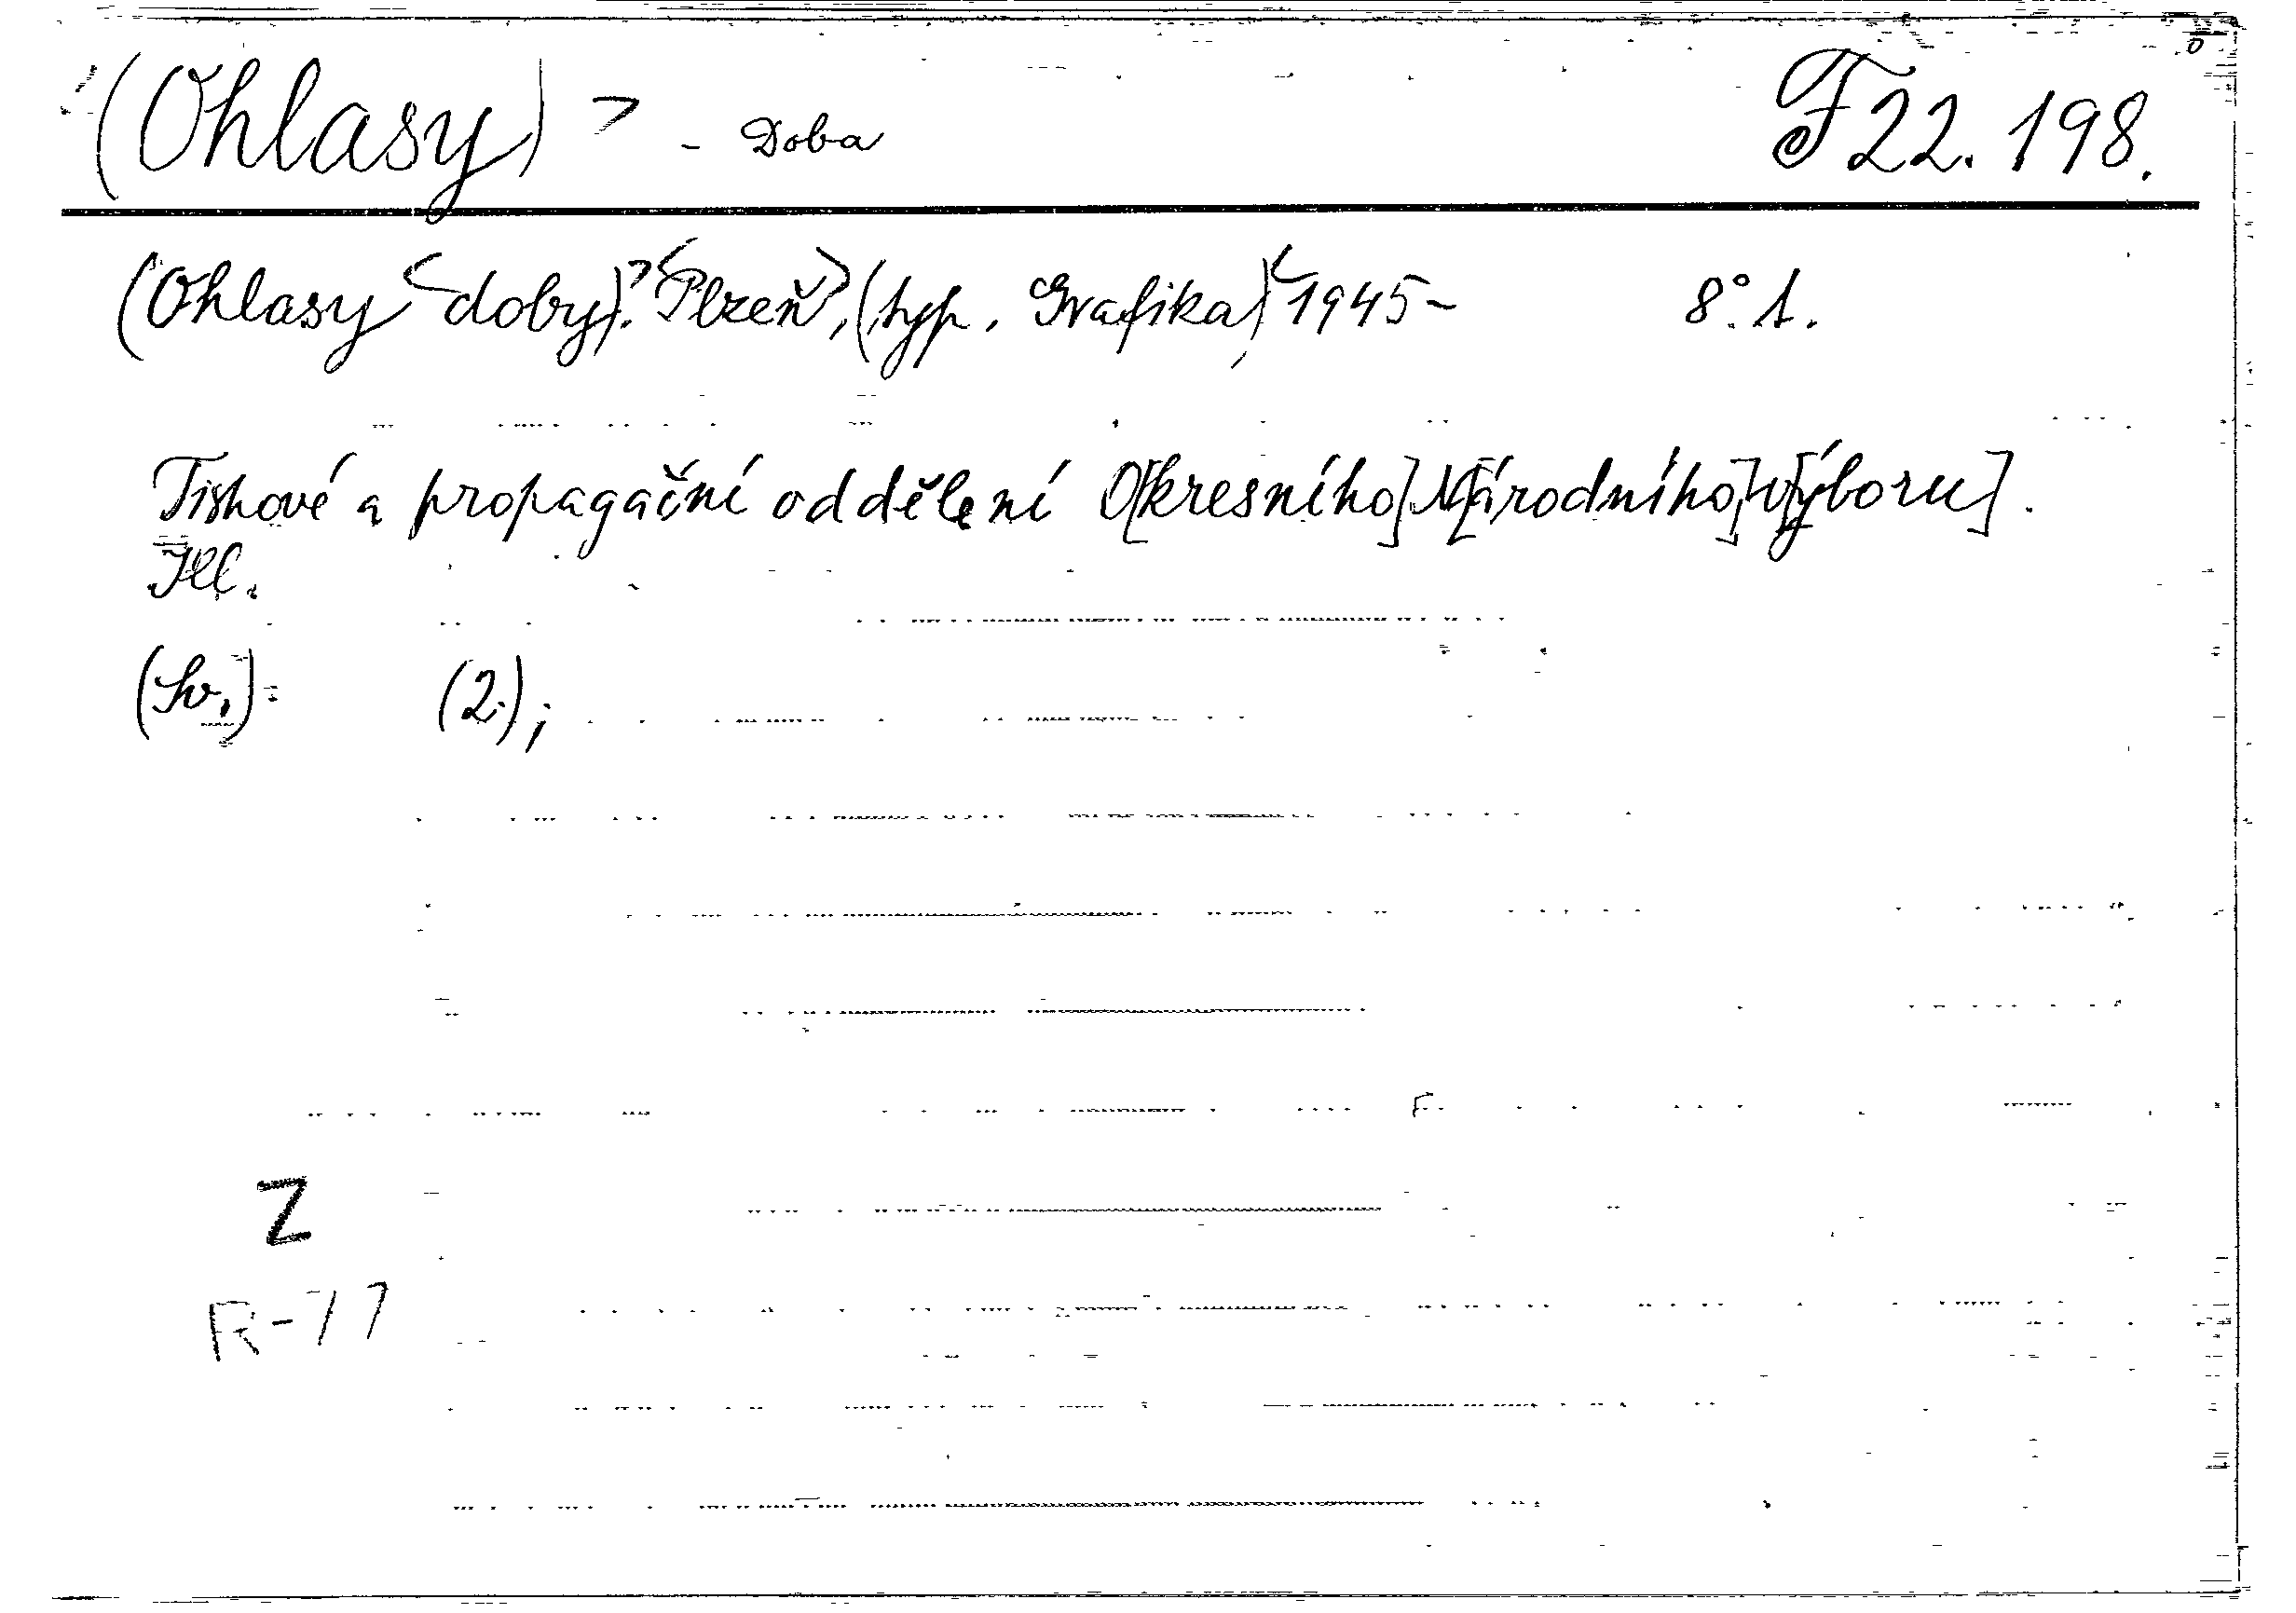 (Ohlasy) > - Doba F 22.198.
(Ohlasy <doby).> <Plzeň>, (typ. Grafika), <1945- 8°. 1.
Tiskové a propagační oddělení O[kresního] N[árodního] V[ýboru].
Ill.
(Sv.): (2.);
Z
R-77